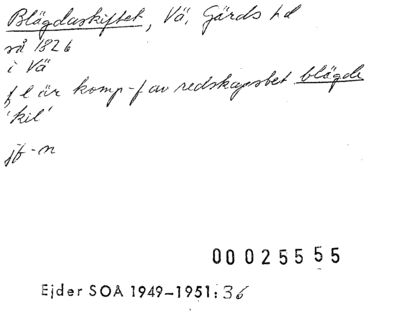 Blägdaskiftet, Vä, Gärds hd
så 1826
i Vä
f l är komp-f av redskapsbet blägde
'kil'
jb-n
00025555
Ejder SOA 1949-1951:36